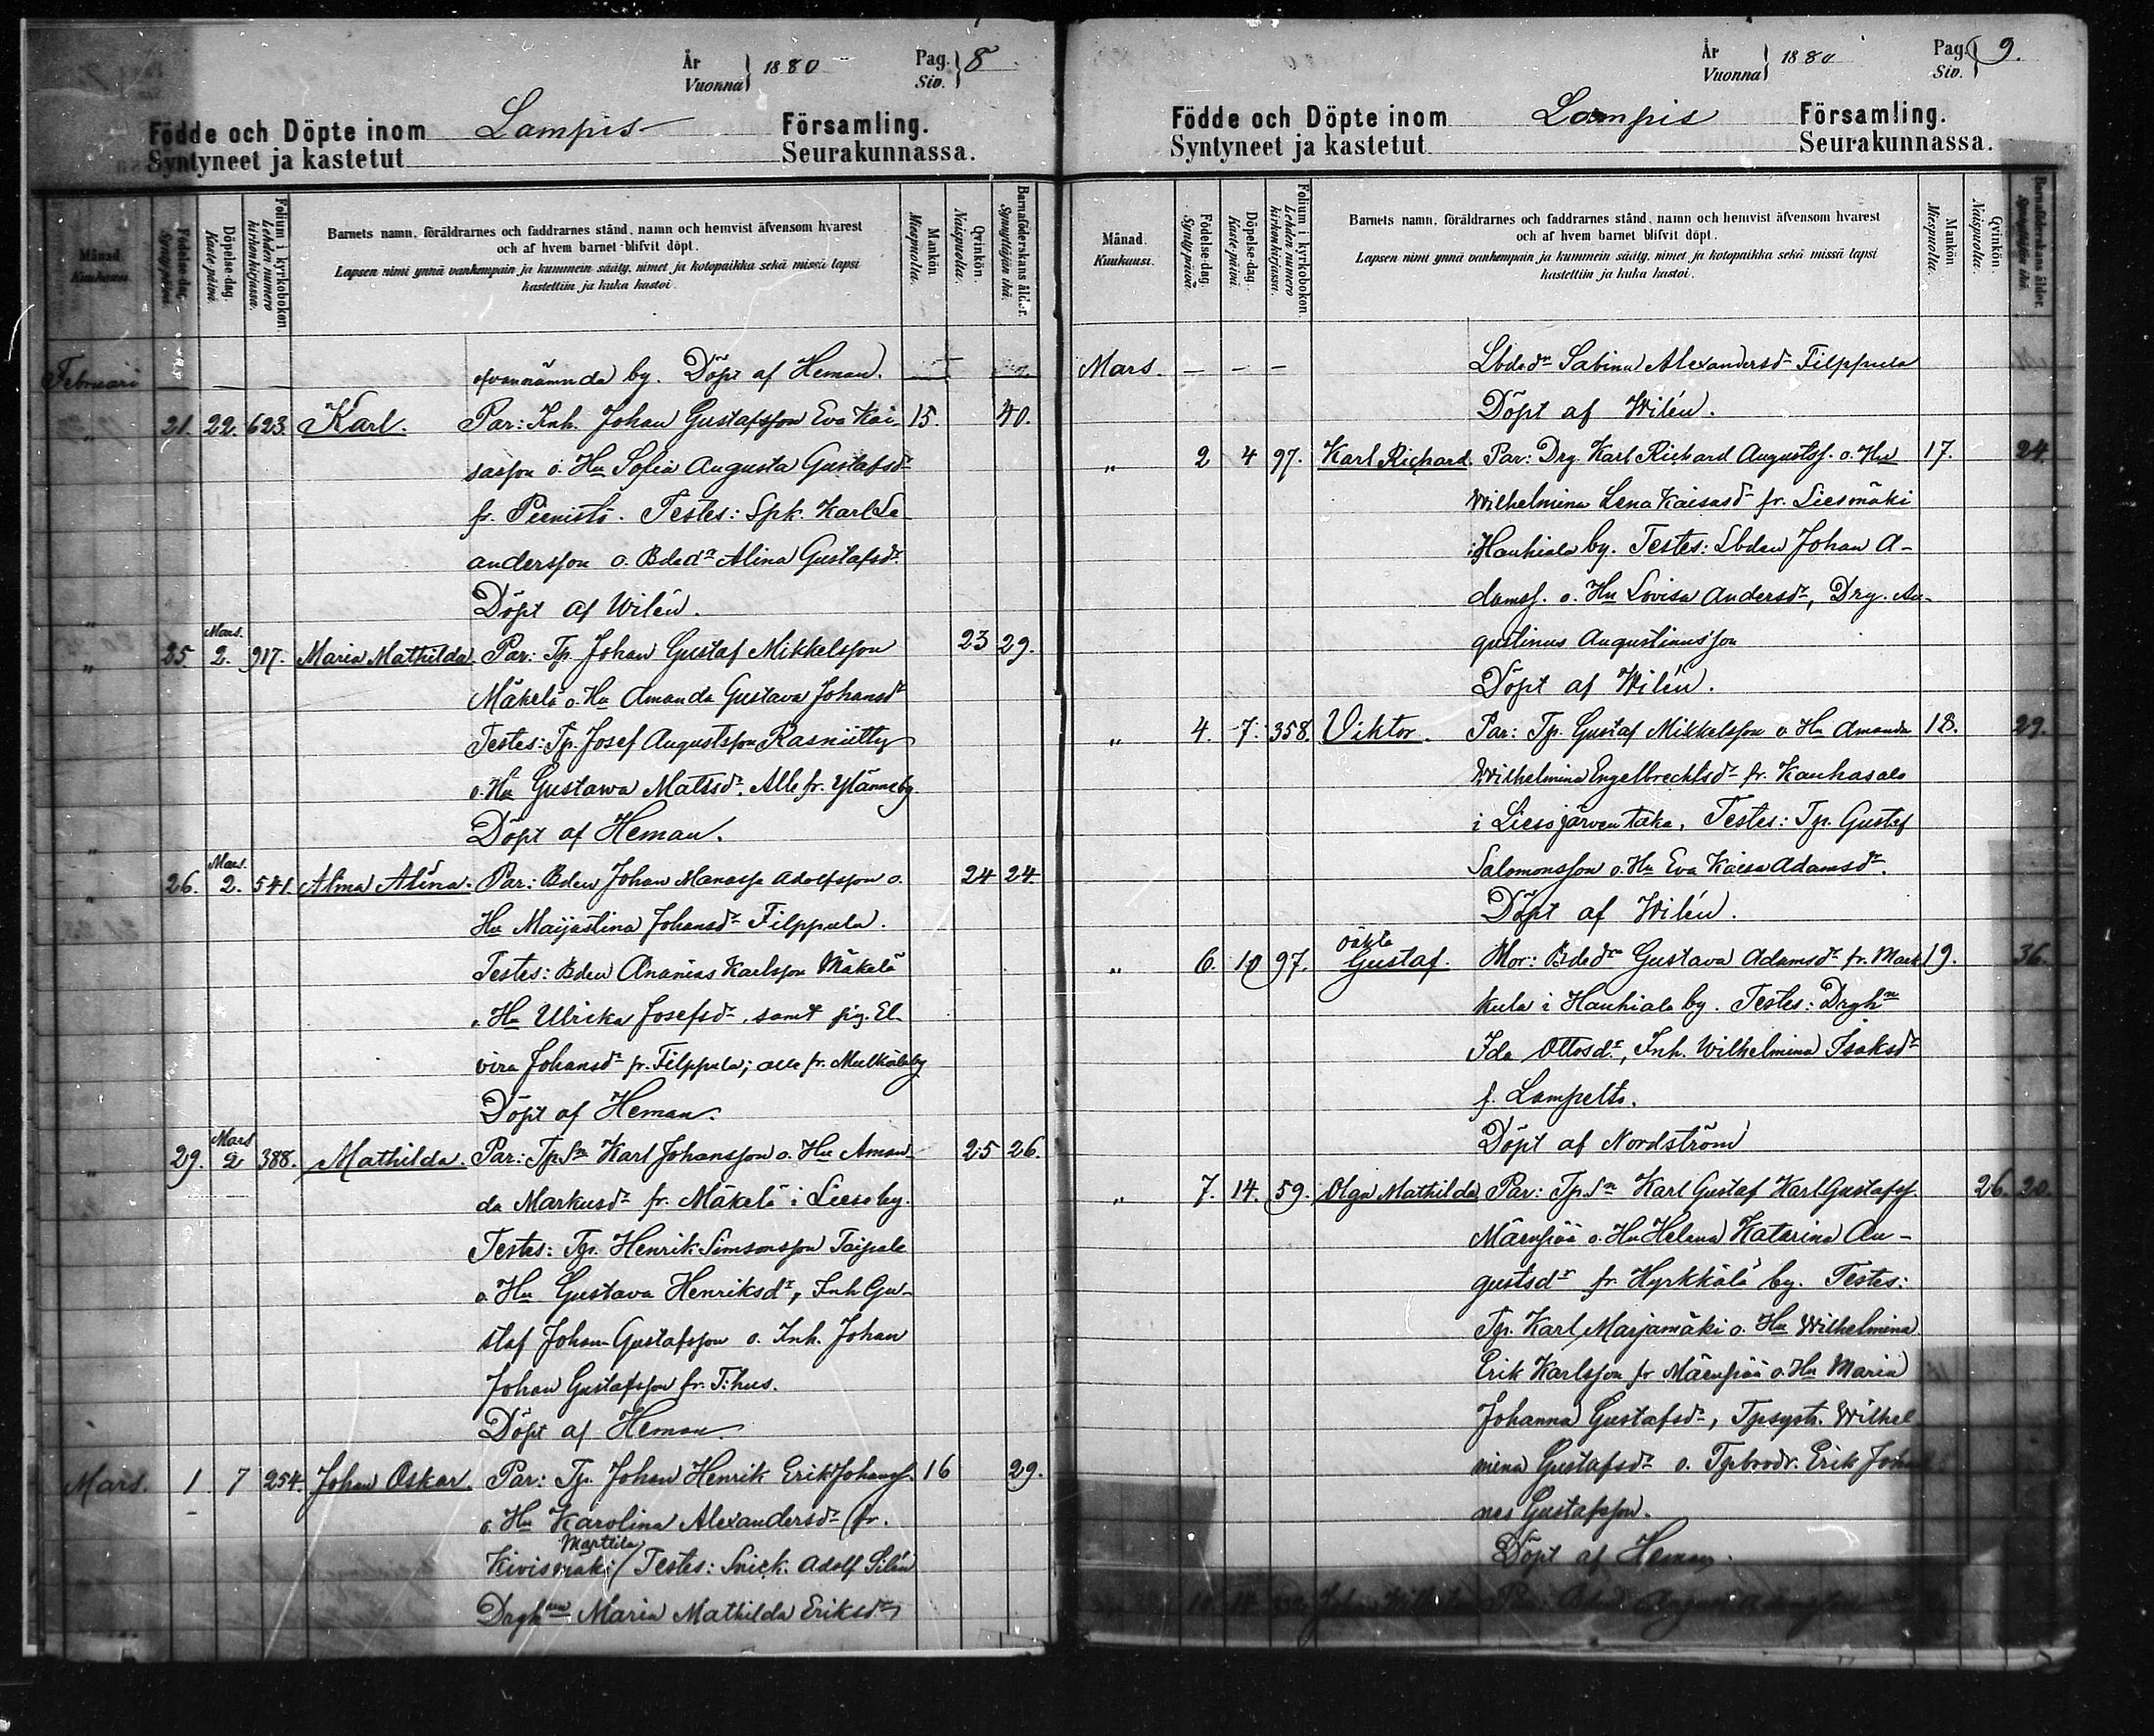 År Vuonna } 1880 Pag. Siv. } 8.
Födde och Döpte inom Lampis Församling.
Syntyneet ja kastetut Seurakunnassa.
Månad. Kuukausi.
Födelse-dag. Syntypäivä.
Döpelse-dag. Kaste-päivä.
Folium i kyrkoboken. Lehden numero kirkonkirjassa.
Barnets namn, föräldrarnes och faddrarnes stånd, namn och hemvist äfvensom hvarest
och af hvem barnet blifvit döpt.
Lapsen nimi ynnä vanhempain ja kummein sääty, nimet ja kotopaikka sekä missä lapsi
kastettiin ja kuka kastoi.
Mankön. Miespuolta.
Qvinkön. Naispuolta.
Barnaföderskans ålder. Synnyttäjän ikä.
Februari — — — ofvannämnda by. Döpt af Heman. — —
„ 21. 22. 623. Karl. Par: Inh. Johan Gustafsson Eva Kai- 15. 40.
sasson o. Hu Sofia Augusta Gustafsdr
fr. Pienistö. Testes: Spk. Karl Le-
andersson o. Bdedr Alina Gustafsdr
Döpt af Wilén.
„ 25 Mars. 2. 917. Maria Mathilda. Par: Tp. Johan Gustaf Mikkelsson 23 29.
Mäkelä o. Hu Amanda Gustava Johansdr
Testes: Tp. Josef Augustsson Rasniitty
o. Hu Gustawa Matsdr. Alle fr. Ylänneby
Döpt af Heman.
„ 26. Mars. 2. 541. Alma Alina. Par: Bden Johan Manasse Adolfsson o. 24 24.
Hu Maijastina Johansdr Filppula.
Testes: Bden Ananias Karlsson Mäkelä
o. Hu Ulrika Josefsdr, samt pig. El-
vira Johansdr fr. Filppula; alla fr. Mulkkolaby
Döpt af Heman.
„ 29. Mars 2 388. Mathilda. Par: Tp.Sn Karl Johansson o. Hu Aman- 25 26.
da Markusdr fr. Mäkelä i Lieso by.
Testes: Tp. Henrik Simsonsson Taipale
o. Hu Gustava Henriksdr, Inh Gu-
staf Johan Gustafsson o. Inh. Johan
Johan Gustafsson fr. T:hus.
Döpt af Heman
Mars. 1. 7 254. Johan Oskar. Par: Tp. Johan Henrik Erik Johanss. 16 29.
o. Hu Karolina Alexandersdr (fr.
Marttila
Kivismäki) Testes: Snick. Adolf Silén
Drghun Maria Mathilda Eriksdr
År Vuonna } 1880 Pag. Siv. } 9.
Födde och Döpte inom Lampis Församling.
Syntyneet ja kastetut Seurakunnassa.
Månad. Kuukausi.
Födelse-dag. Syntypäivä.
Döpelse-dag. Kaste-päivä.
Folium i kyrkoboken Lehden numero kirkonkirjassa.
Barnets namn, föräldrarnes och faddrarnes stånd, namn och hemvist äfvensom hvarest
och af hvem barnet blifvit döpt.
Lapsen nimi ynnä vanhempain ja kummein sääty, nimet ja kotopaikka sekä missä lapsi
kastettiin ja kuka kastoi.
Mankön Miespuolta.
Qvinkön. Naispuolta.
Barnaföderskans ålder. Synnyttäjän ikä.
Mars. — — — Lbdedr Sabina Alexandersdr Filppula
Döpt af Wilén.
„ 2 4 97. Karl Richard. Par: Drg. Karl Richard Augustss. o. Hu 17. 24.
Wilhelmina Lena Kaisasdr fr. Liesmäki
i Hauhiala by. Testes: Lbden Johan A-
damss. o. Hu Lovisa Andersdr, Drg. Au-
gustinus Augustinusson
Döpt af Wilén.
„ 4. 7. 358. Viktor. Par: Tp. Gustaf Mikkelsson o. Hu Amanda 18. 29.
Wilhelmina Engelbrechtsdr fr. Kauhasalo
i Liesojärventaka. Testes: Tp. Gustaf
Salomonsson o. Hu Eva Kaisa Adamsdr.
Döpt af Wilén.
„ 6. 10 97. oäkta Gustaf. Mor: Bdedr Gustava Adamsdr fr. Mark 19. 36.
kula i Hauhiala by. Testes: Drghn
Ida Ottosdr, Inh. Wilhelmina Isaksdr
f. Lampelto.
Döpt af Nordström
„ 7. 14. 59. Olga Mathilda Par: Tp.Sn Karl Gustaf Karl Gustafss. 26. 20.
Mäenpää o. Hu Helena Katarina Au-
gustsdr fr Hyrkkälä by. Testes:
Tp. Karl Marjamäki o. Hu Wilhelmina
Erik Karlsson fr Mäenpää o. Hu Maria
Johanna Gustafsdr, Tpsystr. Wilhel
mina Gustafsdr o. Tpbrodr. Erik Johan
nes Gustafsson.
Döpt af Heman.